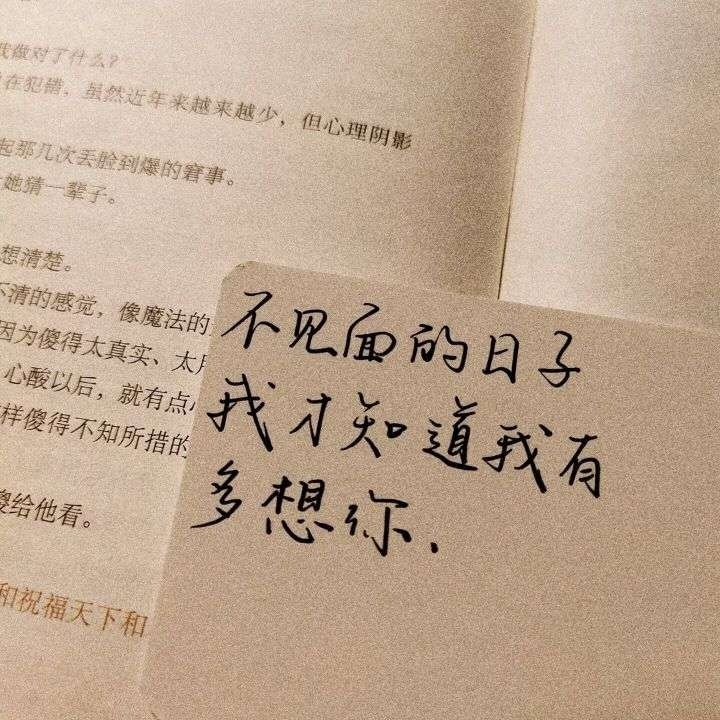 我做对了什么？
在犯错，虽然近年来越来越少，但心理阴影
起那几次丢脸到爆的窘事。
她猜一辈子。
想清楚。
不清的感觉，像魔法的
因为傻得太真实、太
心酸以后，就有点
样傻得不知所措的
傻给他看。
和祝福天下和
不见面的日子
我才知道我有
多想你.